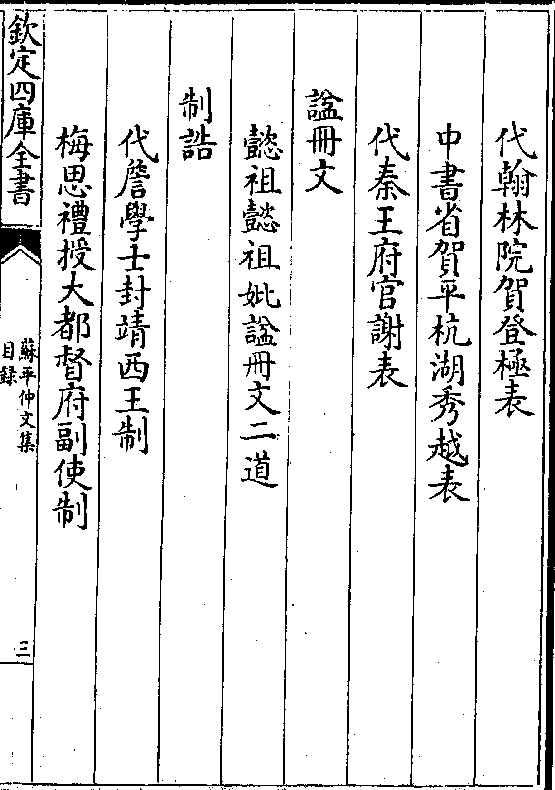 代翰林院賀登極表
中書省賀平杭湖秀越表
代秦王府官謝表
諡冊文
懿祖懿祖妣諡冊文二道
制誥
代詹學士封靖西王制
梅思禮授大都督府副使制
欽定四庫全書
蘇平仲文集
目録
三